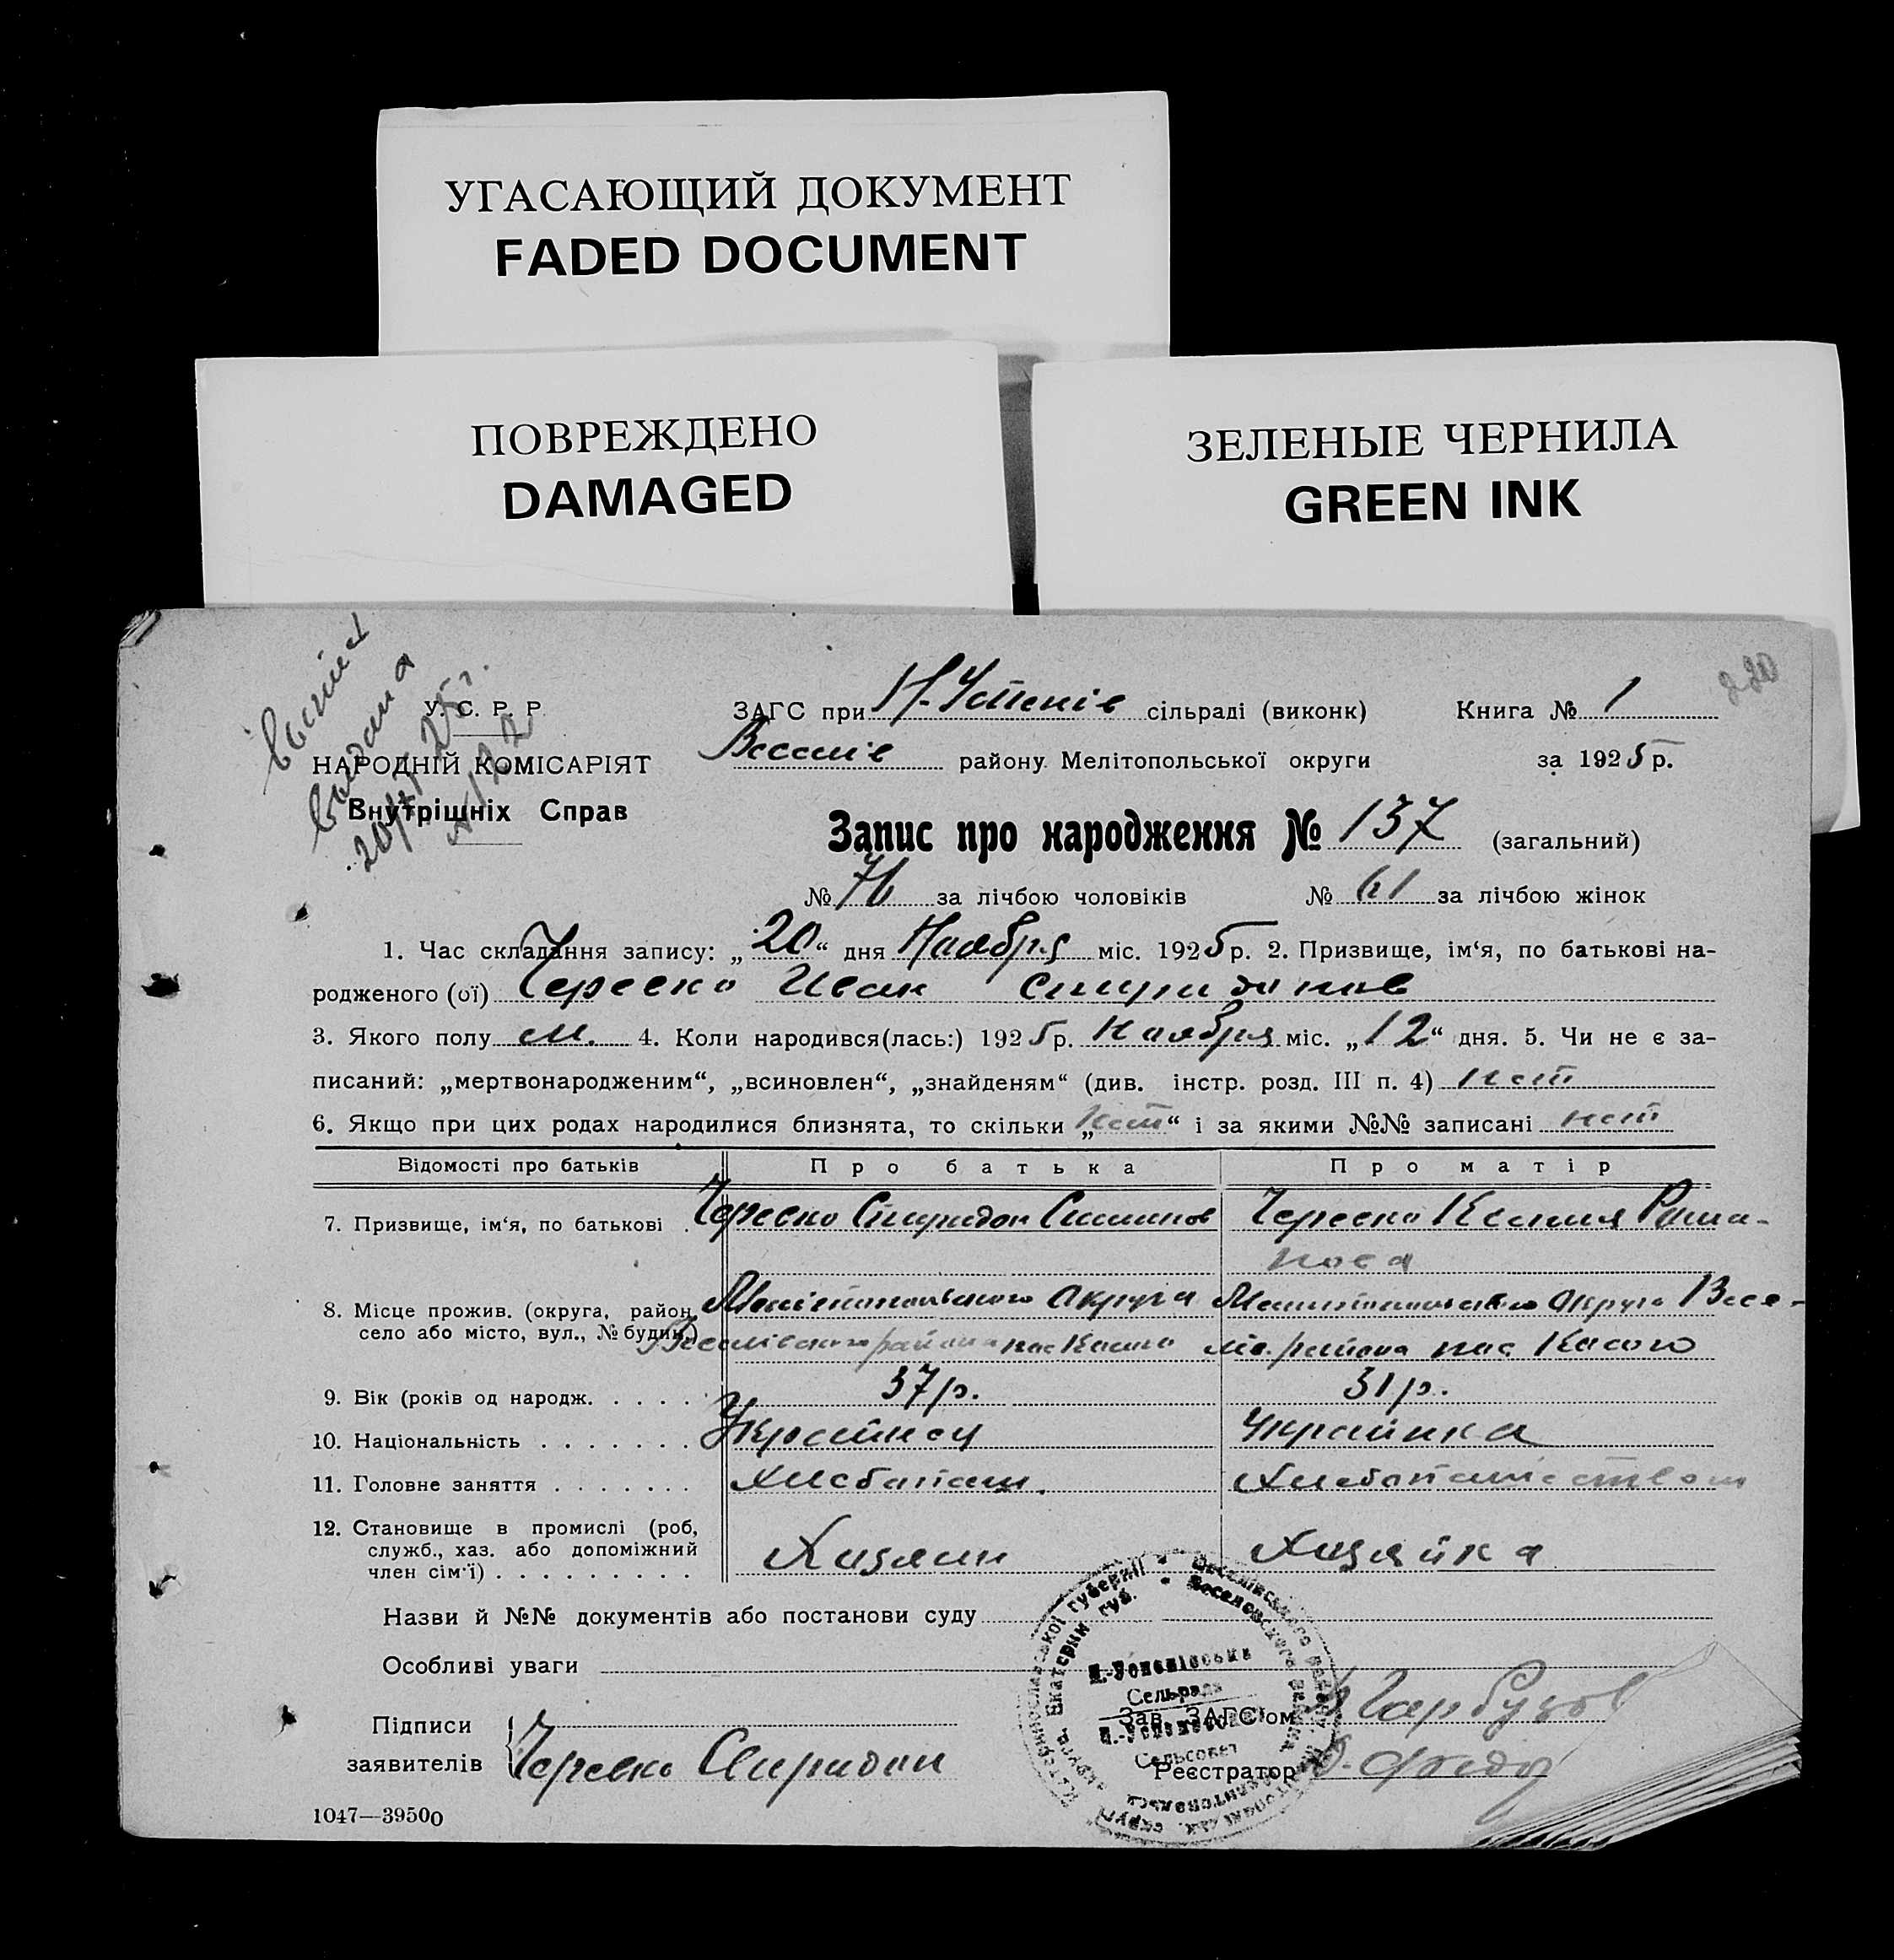 УГАСАЮЩИЙ ДОКУМЕНТ
FADED DOCUMENT
ПОВРЕЖДЕНО
DAMAGED
ЗЕЛЕНЫЕ ЧЕРНИЛА
GREEN INK
220
выдана
У. С. Р. Р.
НАРОДНІЙ КОМІСАРІЯТ
Внутрішніх Справ
ЗАГС при Н-Успенів сільраді (виконк) Книга № 1
Веселів району Мелітопольської округи за 1925 р.
Запис про народження № 137 (загальний)
№ 76 за лічбою чоловіків № 61 за лічбою жінок
1. Час складання запису: „20“ дня Ноября міс. 1925 р. 2. Призвище, ім‘я, по батькові на-
родженого (ої) Череско Иван Спиридонов
3. Якого полу м. 4. Коли народився(лась:) 1925 р. ноября міс. „12“ дня. 5. Чи не є за-
писаний: „мертвонародженим“, „всиновлен“, „знайденям“ (див. інстр. розд. III п. 4) нет
6. Якщо при цих родах народилися близнята, то скільки „нет“ і за якими №№ записані нет
Відомості про батьків Про батька Про матір
7. Призвище, ім‘я, по батькові . Череско Спиридон Череско Ксения Рома-
нова
8. Місце прожив. (округа, район, Мелітопольского округа округа Весе-
село або місто, вул., № будин.) района пос района пос
9. Вік (років од народж. . . . . 37 р. 31 р.
10. Національність . . . . . . . Украинец Украинка
11. Головне заняття . . . . . . . Хлебопаш. Хлебопашеством
12. Становище в промислі (роб,
служб., хаз. або допоміжний
член сім‘ї) . . . . . . . . . Хозяин Хозяйка
Назви й №№ документів або постанови суду
Особливі уваги
Н.-Успенівська
Сельрада
Н.-Успеновский
Сельсовет
Підписи
заявителів Череско Спиридон
Зав. ЗАГС‘ом
Реєстратор
1047—39500